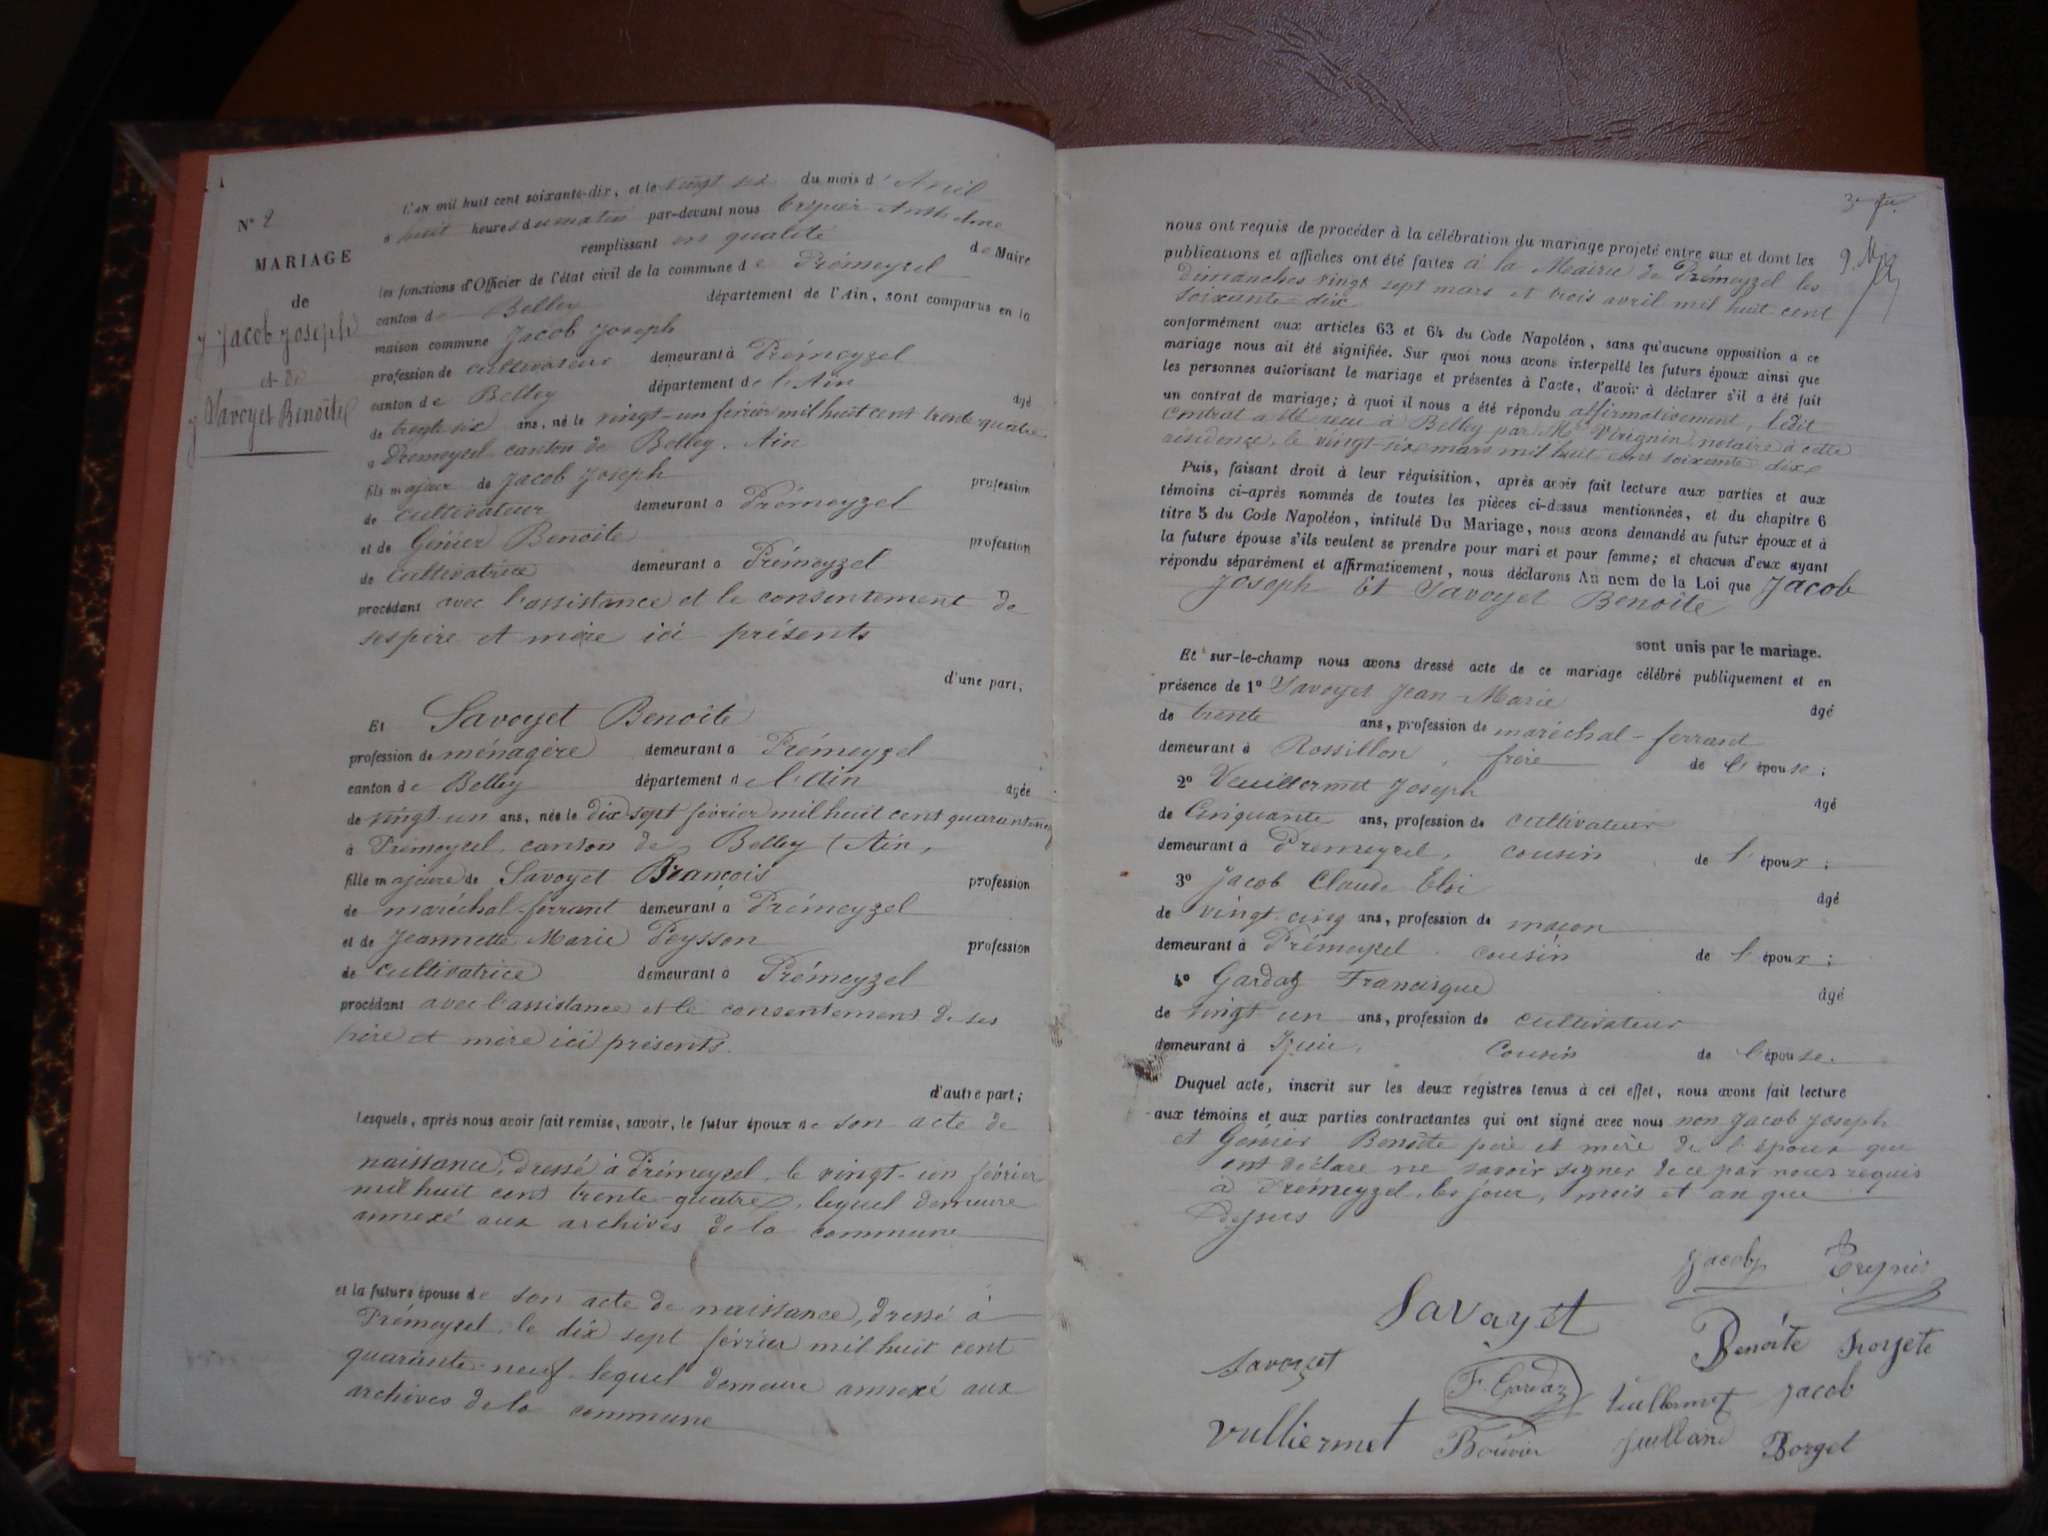 N° 2
MARIAGE
de
Jacob Joseph
et de
Savoyet Benoite
L'AN mil huit cent soixante-dix, et le vingt six du mois d'Avril
à huit heures du matin par-devant nous Anthelme
remplissant en qualité de Maire
les fonctions d'Officier de l'état civil de la commune de Prémeyzel
canton de Belley département de l'Ain, sont comparus en la
maison commune Jacob Joseph
profession de cultivateur demeurant à Prémeyzel
canton de Belley département de l'Ain âgé
de trente six ans, né le vingt-un février mil huit cent trente quatre
à Prémeyzel canton de Belley. Ain
fils majeur de Jacob Joseph profession
de cultivateur demeurant à Prémeyzel
et de Génier Benoite profession
de cultivatrice demeurant à Prémeyzel
procédant avec l'assistance et le consentement de
ses père et mère ici présents
d'une part;
Et Savoyet Benoite
profession de ménagère demeurant à Prémeyzel
canton de Belley département de l'Ain âgée
de vingt-un ans, née le dix sept février mil huit cent quarante neuf
à Prémeyzel canton de Belley (Ain,
fille majeure de Savoyet François profession
de maréchal-ferrant demeurant à Prémeyzel
et de Jeannette Marie Peysson profession
de cultivatrice demeurant à Prémeyzel
procédant avec l'assistance et le consentement de ses
père et mère ici présents.
d'autre part;
Lesquels, après nous avoir fait remise, savoir, le futur époux de son acte de
naissance, dressé à Prémeyzel, le vingt-un février
mil huit cent trente-quatre, lequel demeure
annexé aux archives de la commune
et la future épouse de son acte de naissance, dressé à
Prémeyzel, le dix sept février mil huit cent
quarante-neuf lequel demeure annexé aux
archives de la commune
nous ont requis de procéder à la célébration du mariage projeté entre eux et dont les
publications et affiches ont été faites à la Mairie de Prémeyzel les
dimanches vingt sept mars et trois avril mil huit cent
soixante-dix
conformément aux articles 63 et 64 du Code Napoléon, sans qu'aucune opposition à ce
mariage nous ait été signifiée. Sur quoi nous avons interpellé les futurs époux ainsi que
les personnes autorisant le mariage et présentes à l'acte, d'avoir à déclarer s'il a été fait
un contrat de mariage; à quoi il nous a été répondu affirmativement, ledit
contrat a été reçu à Belley par Me Virignin notaire à cette
résidence, le vingt-six mars mil huit cent soixante dix
Puis, faisant droit à leur réquisition, après avoir fait lecture aux parties et aux
témoins ci-après nommés de toutes les pièces ci-dessus mentionnées, et du chapitre 6
titre 5 du Code Napoléon, intitulé Du Mariage, nous avons demandé au futur époux et à
la future épouse s'ils veulent se prendre pour mari et pour femme; et chacun d'eux ayant
répondu séparément et affirmativement, nous déclarons Au nom de la Loi que Jacob
Joseph Et Savoyet Benoite
sont unis par le mariage.
Et sur-le-champ nous avons dressé acte de ce mariage célébré publiquement et en
présence de 1° Savoyet Jean-Marie âgé
de trente ans, profession de maréchal-ferrant
demeurant à Rossillon, frère de l'épouse;
2° Veuillermet Joseph âgé
de Cinquante ans, profession de cultivateur
demeurant à Prémeyzel, cousin de l'époux;
3° Jacob Claude Eloi âgé
de vingt-cinq ans, profession de maçon
demeurant à Prémeyzel. cousin de l'époux;
4° Gardaz Francisque âgé
de vingt un ans, profession de cultivateur
demeurant à Izieu, Cousin de l'épouse.
Duquel acte, inscrit sur les deux registres tenus à cet effet, nous avons fait lecture
aux témoins et aux parties contractantes qui ont signé avec nous non Jacob Joseph
et Génier Benoite père et mère de l'époux que
ont déclaré ne savoir signer de ce par nous requis
à Prémeyzel, les jour, mois et an que
dessus
Jacob
Savayet
Benoite Savoyete
Savoyet
F. Gardaz
Vuillermet Jacob
Vulliermet
Bouvier
Juilland
Borgel